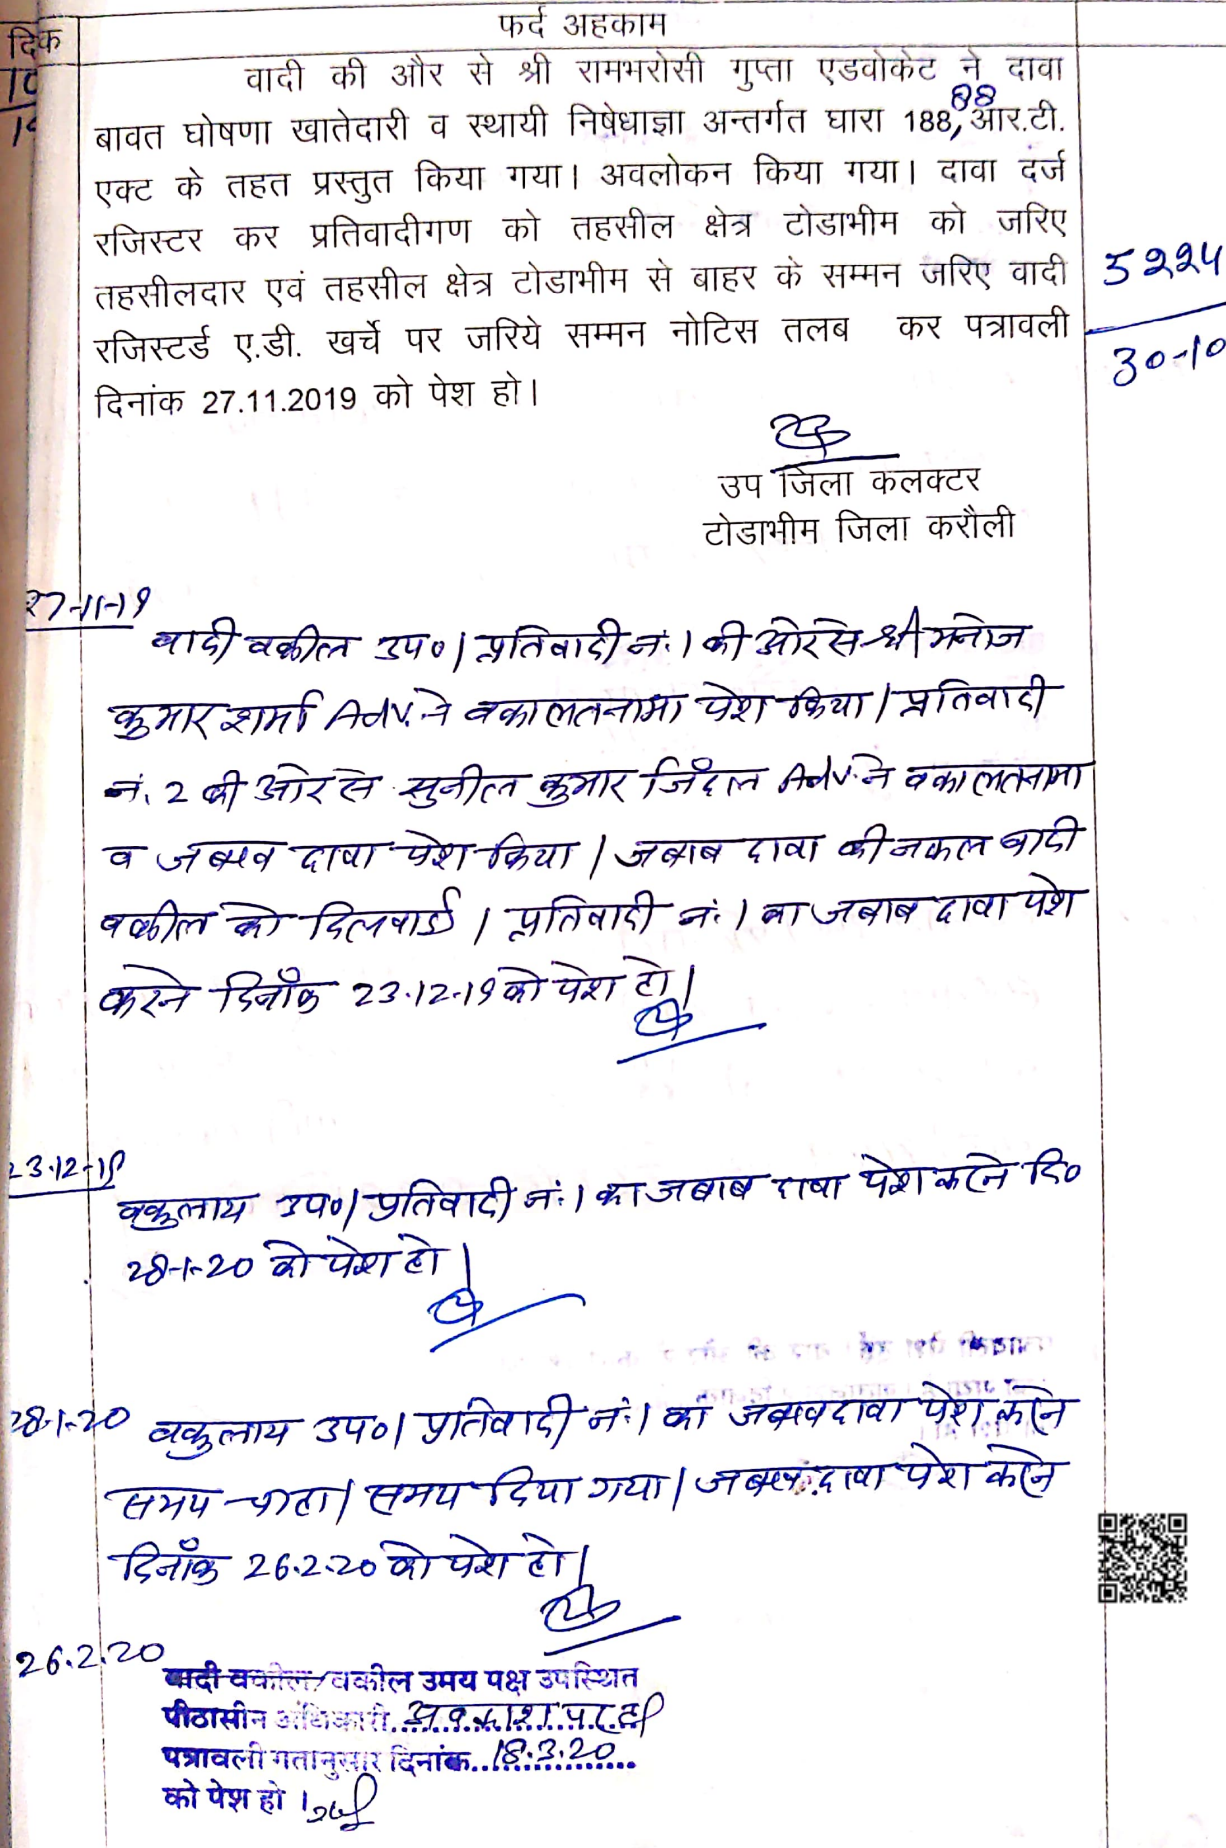 फर्द अहकाम
दिक
वादी की और से श्री रामभरोसी गुप्ता एडवोकेट ने दावा
88
बावत घोषणा खातेदारी व स्थायी निषेधाज्ञा अन्तर्गत घारा 188, आर.टी.
एक्ट के तहत प्रस्तुत किया गया। अवलोकन किया गया। दावा दर्ज
रजिस्टर कर प्रतिवादीगण को तहसील क्षेत्र टोडाभीम को जरिए
तहसीलदार एवं तहसील क्षेत्र टोडाभीम से बाहर के सम्मन जरिए वादी
रजिस्टर्ड ए.डी. खर्चे पर जरिये सम्मन नोटिस तलब कर पत्रावली
दिनांक 27.11.2019 को पेश हो।
5224
30-10
उप जिला कलक्टर
टोडाभीम जिला करौली
27-11-19
वादी वकील उप०। प्रतिवादी नं. 1 की ओर से श्री मनोज
कुमार शर्मा Adv. ने वकालतनामा पेश किया। प्रतिवादी
नं. 2 की ओर से सुनील कुमार जिंदल Adv. ने वकालतनामा
व जबाव दावा पेश किया। जबाब दावा की नकल वादी
वकील को दिलवाई। प्रतिवादी नं. 1 का जबाब दावा पेश
करने दिनाँक 23.12.19 को पेश हो।
23.12-19
वकुलाय उप०। प्रतिवादी नं. 1 का जबाब दावा पेश करने दि०
28-1-20 को पेश हो।
28-1-20
वकुलाय उप०। प्रतिवादी नं. 1 का जबाव दावा पेश करने
समय चाहा। समय दिया गया। जबाव दावा पेश करने
दिनाँक 26.2.20 को पेश हो।
26.2.20
वादी वकील/वकील उमय पक्ष उपस्थित
पीठासीन अधिकारी..अवकाश पर है
पत्रावली गतानुसार दिनांक..18.3.20..
को पेश हो।